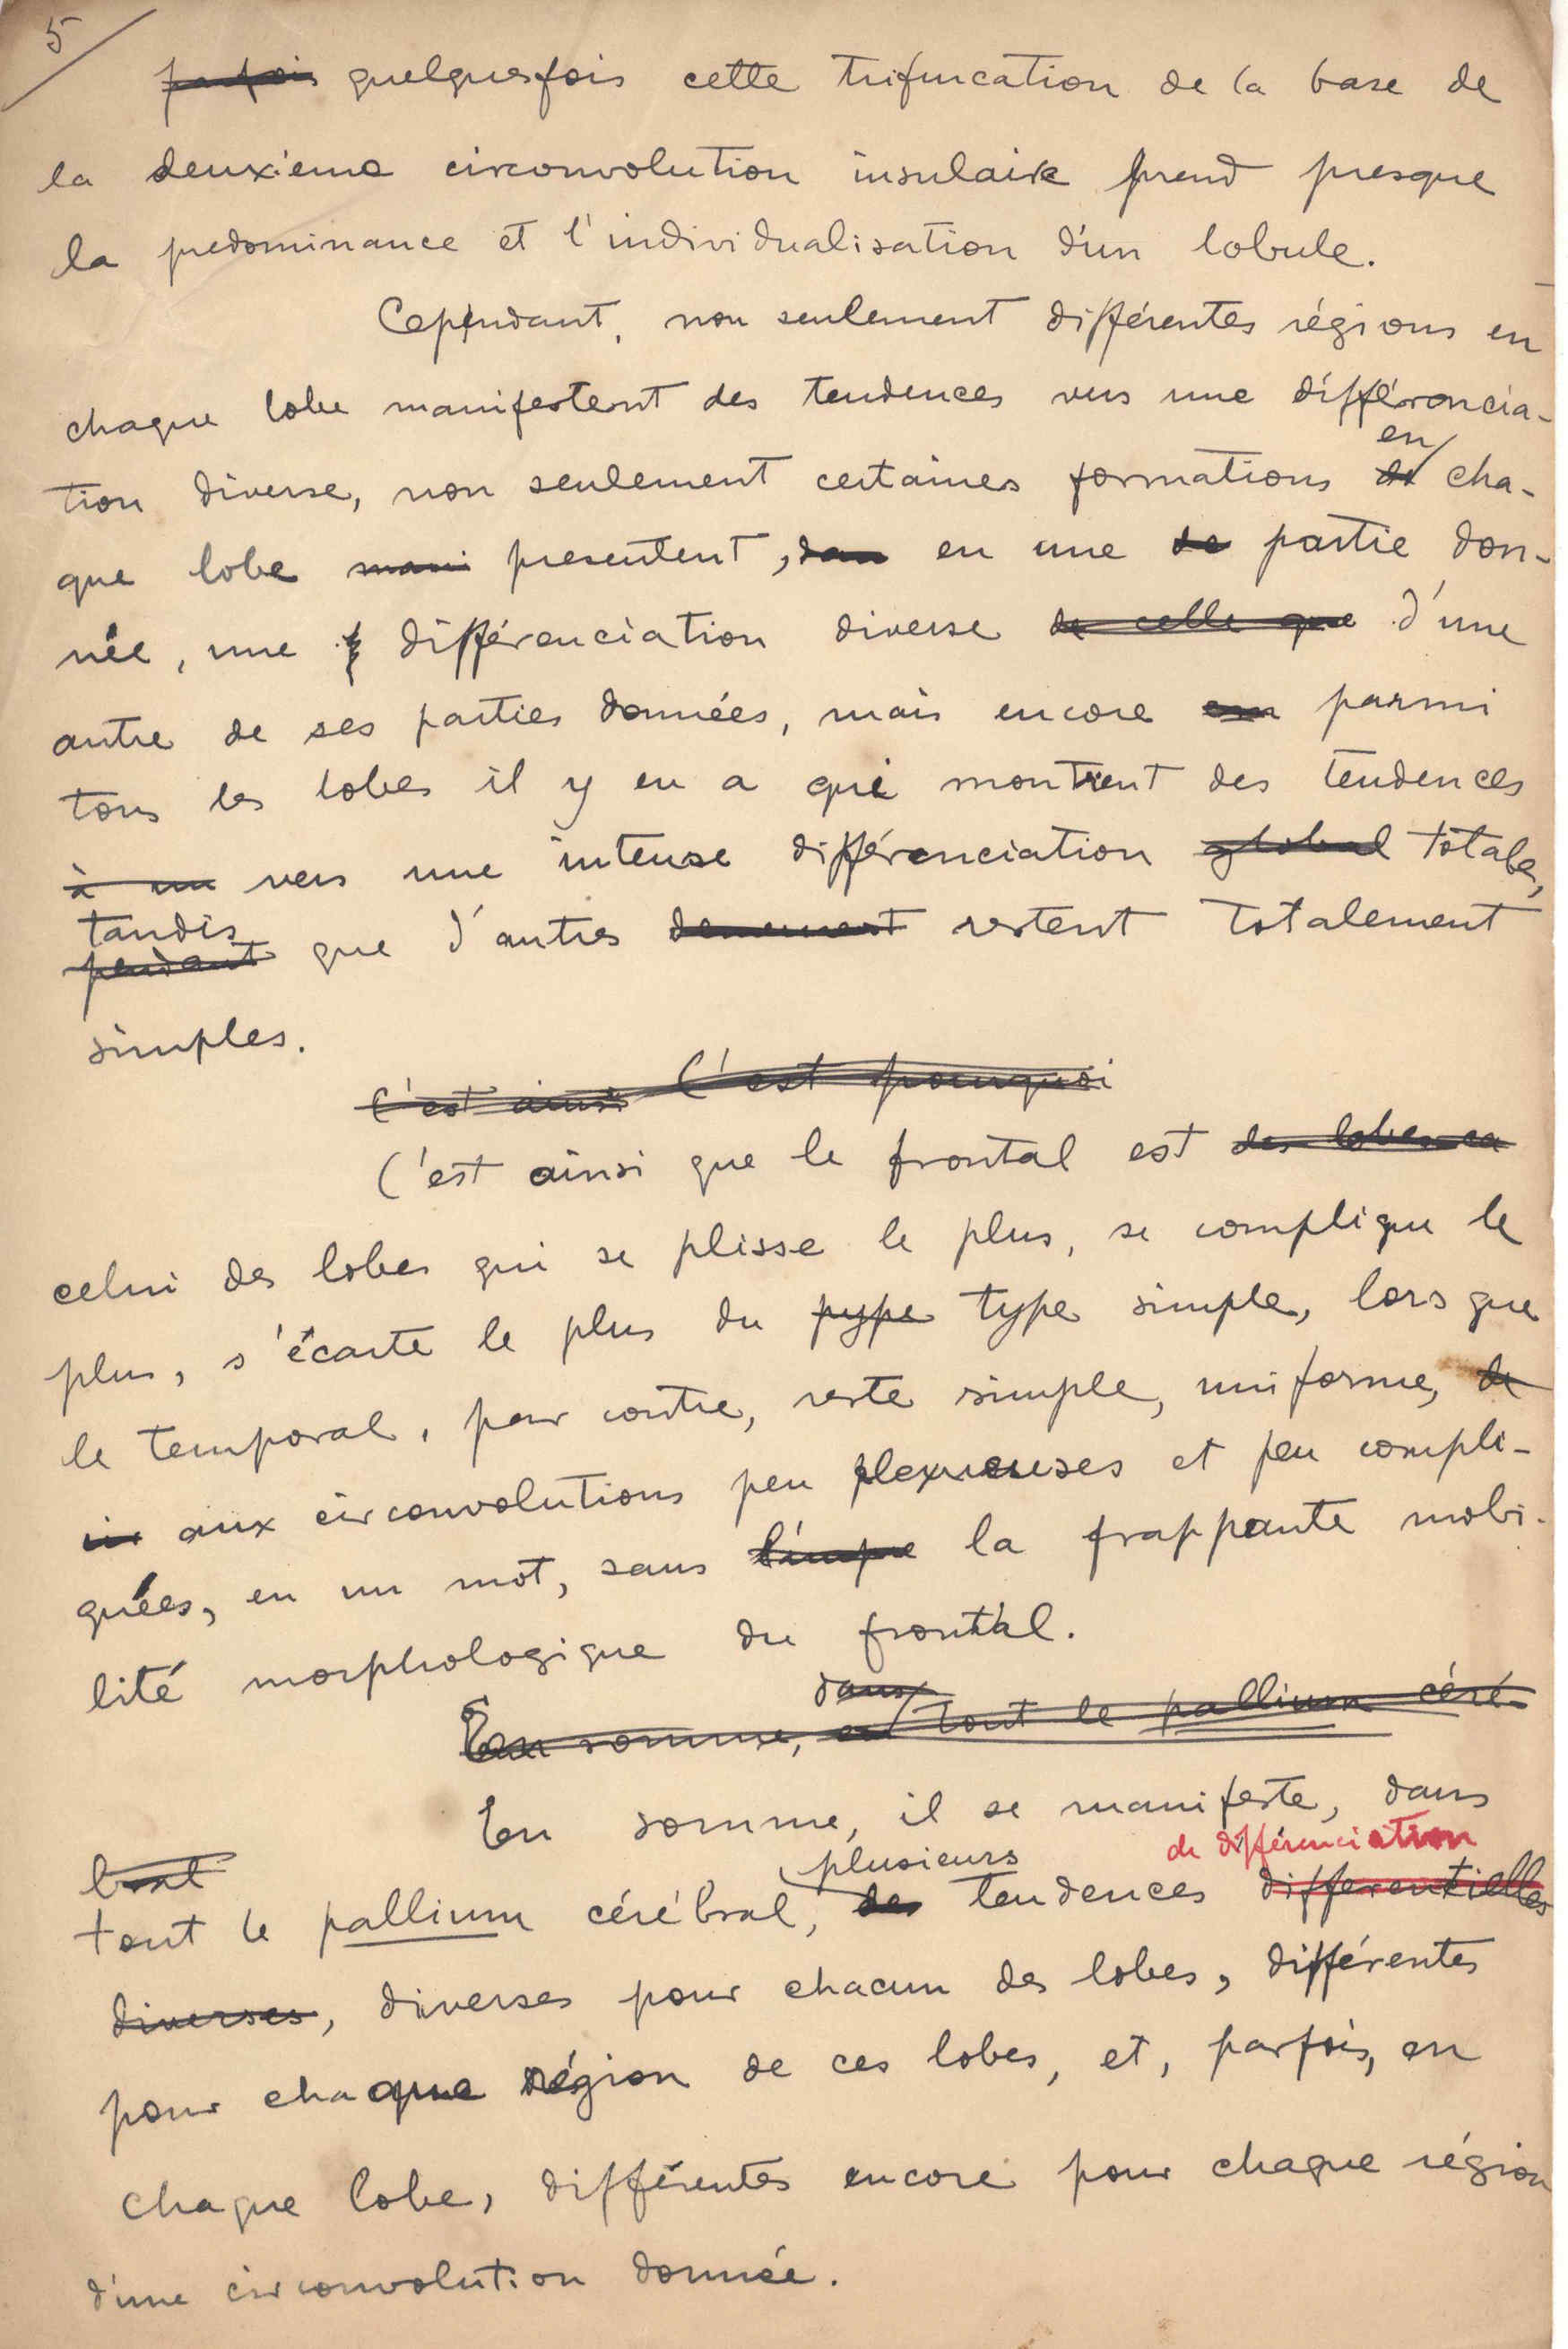 5
parfois quelquesfois cette trifurcation de la base de
la deuxième circonvolution insulaire prend presque
la predominance et l'individualisation d'un lobule.
Cependant, non seulement différentes régions en
chaque lobe manifestent des tendences vers une différencia-
en
tion diverse, non seulement certaines formations de cha-
que lobe mani presentent, dan en une de partie don-
née, une différenciation diverse de celle que d'une
autre de ses parties données, mais encore en parmi
tous les lobes il y en a qui montrent des tendences
à un vers une intense différenciation global totale,
tandis
pendant que d'autres demeurent restent totalement
simples.
C'est ainsi C'est pourquoi
C'est ainsi que le frontal est des lobes ce
celui des lobes qui se plisse le plus, se complique le
plus, s'écarte le plus du pype type simple, lorsque
le temporal, par contre, reste simple, uniforme, de
cir aux circonvolutions peu plexueuses et peu compli-
quées, en un mot, sans l'impre la frappante mobi-
lité morphologique du frontal.
dans
En somme, en tout le pallium céré-
En somme, il se manifeste, dans
plusieurs de différenciation
bral
tout le pallium cérébral, des tendences differentielles
diverses, diverses pour chacun des lobes, différentes
pour chaque région de ces lobes, et, parfois, en
chaque lobe, différentes encore pour chaque région
d'une circonvolution donnée.